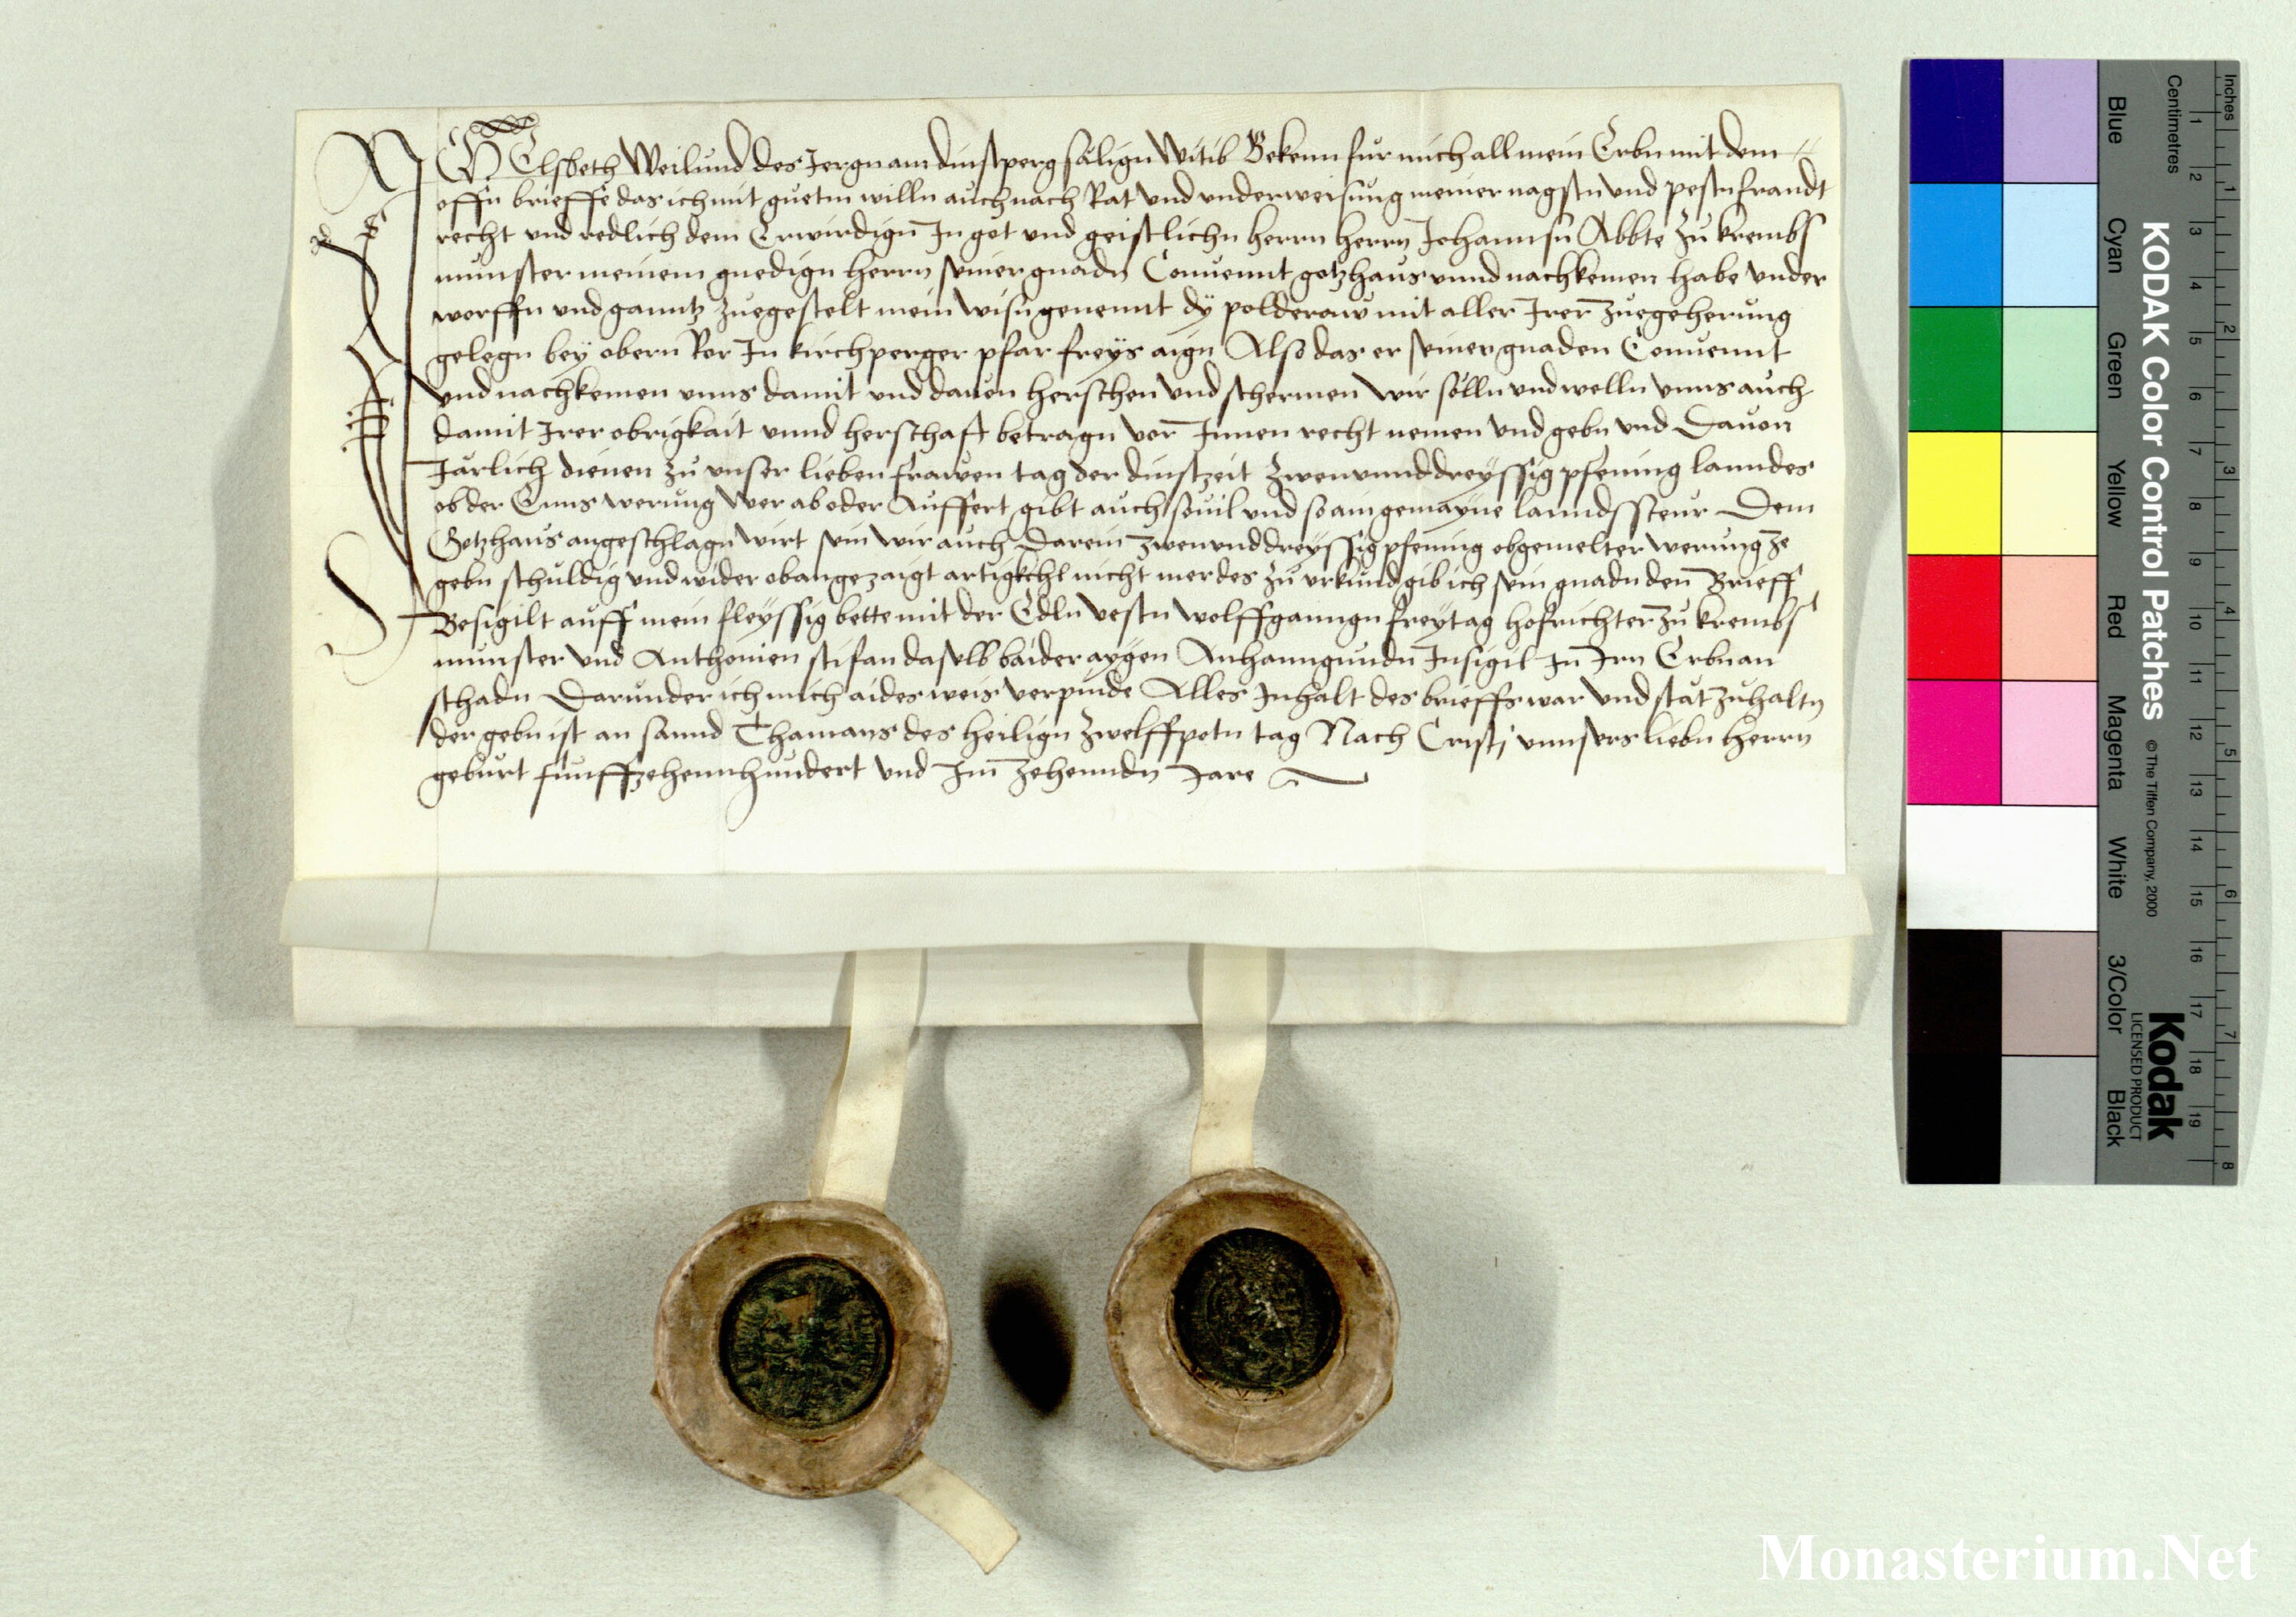 ICH Elsbeth Weilund des Jergn am dinstperg sälign Witib Bekenn für mich all mein Erbn mit dem
offn brieffe das ich mit guetm willn auch nach Rat vnd vnderweisung meiner nagstn vnd pestn frandt
recht vnd redlich dem Erwirdign In got vnd geistlichn herrn herrn Johannsn Abbte zu krembs
munster meinem gnedign herrn seiner gnadn Conuennt gotzhaus vnnd nachkomen habe vnder
worffn vnd ganntz zuegestelt mein wisn genennt dy polderaw mit aller Irer zuegeherung
gelegn bey obern Ror In kirchperger pfar freys aign Also das er seiner gnaden Conuennt
vnd nachkomen vnns damit vnd dauon herschen vnd schermen wir sölln vnd welln vnns auch
damit Irer obrigkait vnnd herschafft betragn vor Innen recht nemen vnd gebn vnd Dauon
Järlich dienen zu vnser lieben frawen tag der dinstzeit zwenvnnddreyssig pfening lanndes
ob der Enns werung wer ab oder Auffert gibt auch souil vnd so ain gemayne lanndssteur Dem
Gotzhaus angeschlagn wirt sein wir auch Darein zwenvnddreyssig pfening obgemelter werung ze
gebn schuldig vnd wider obangezaigt artigkchl nicht mer des zu vrkund gib ich sein gnadn den Brieff
Besigilt auff mein fleyssig bette mit der Edln vestn wolffganngn freytag hofrichter zu krembs
munster vnd Anthonien stifan daselb baider aygen Anhanngundn Insigil In Irn Erbn an
schadn Darunder ich mich aides weis verpinde Alles Inhalt des brieffs war vnd stät zuhaltn
der gebn ist an sannd Thamans des heilign zwelffpotn tag Nach Cristj vnnsers liebn herrn
geburt funffzehennhundert vnd Im zehenndn Jare
KODAK Color Control Patches © The Tiffen Company, 2000
Kodak
LICENSED PRODUCT
Blue Cyan Green Yellow Red Magenta White 3/Color Black
Centimetres 1 2 3 4 5 6 7 8 9 10 11 12 13 14 15 16 17 18 19
Inches 1 2 3 4 5 6 7 8
Monasterium.Net